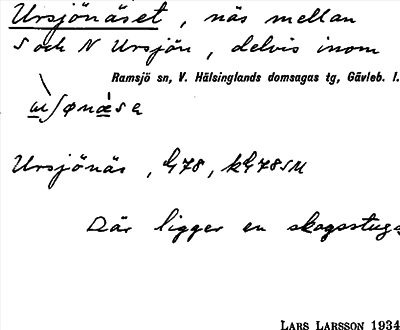 Ursjönäset, näs mellan
S och N Ursjön, delvis inom
Ramsjö sn, V. Hälsinglands domsagas tg, Gävleb. l.
Ursjönäs, G78, kG78SM
Där ligger en skogsstuga
LARS LARSSON 1934